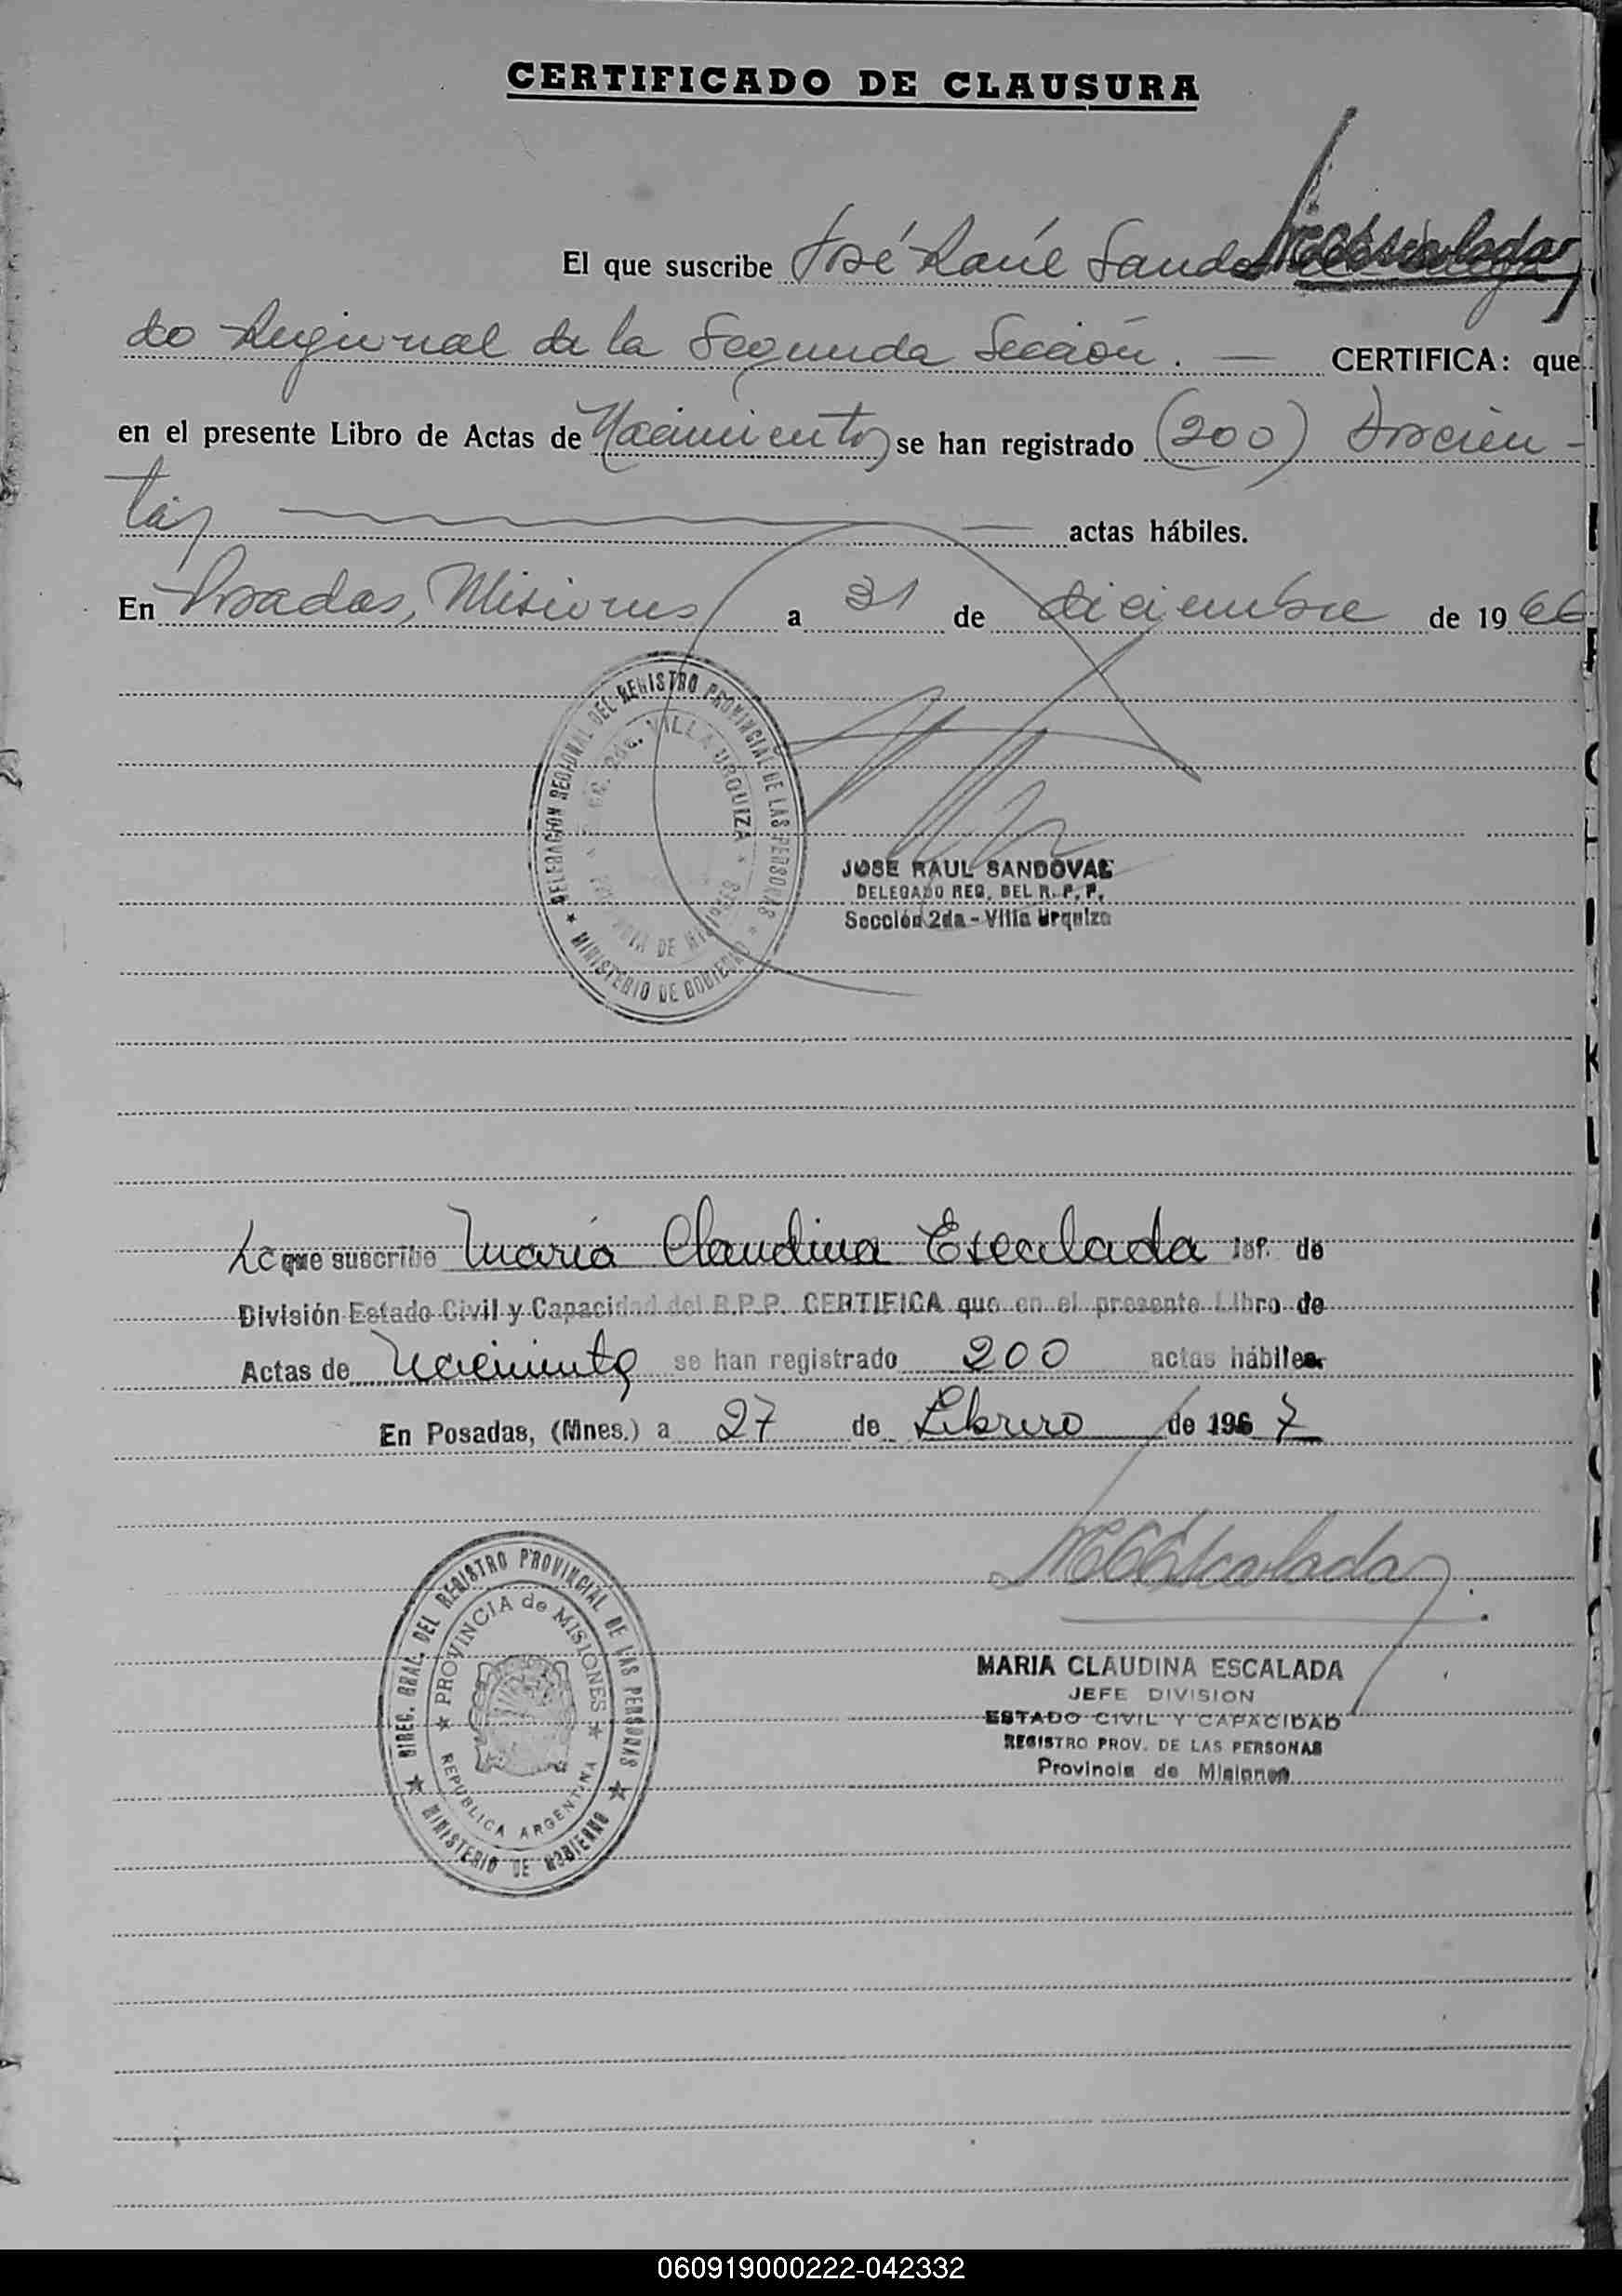 CERTIFICADO DE CLAUSURA
El que suscribe José Raúl Sandoval
do Regional de la Segunda Sección. — CERTIFICA: que
en el presente Libro de Actas de Nacimientos se han registrado (200) Doscien-
tas — actas hábiles.
En Posadas, Misiones a 31 de diciembre de 1966
DELEGACION REGIONAL DEL REGISTRO PROVINCIAL DE LAS PERSONAS
VILLA URQUIZA
PROVINCIA DE MISIONES
MINISTERIO DE GOBIERNO
JOSE RAUL SANDOVAL
DELEGADO REG. DEL R. P. P.
Sección 2da - Villa Urquiza
La que suscribe María Claudina Escalada Jef. de
División Estado Civil y Capacidad del R.P.P. CERTIFICA que en el presente Libro de
Actas de Nacimiento se han registrado 200 actas hábiles.
En Posadas, (Mnes.) a 27 de Febrero de 1967
MCEscalada
DIREC. GRAL. DEL REGISTRO PROVINCIAL DE LAS PERSONAS
PROVINCIA de MISIONES
REPUBLICA ARGENTINA
MINISTERIO DE GOBIERNO
MARIA CLAUDINA ESCALADA
JEFE DIVISION
ESTADO CIVIL Y CAPACIDAD
REGISTRO PROV. DE LAS PERSONAS
Provincia de Misiones
060919000222-042332